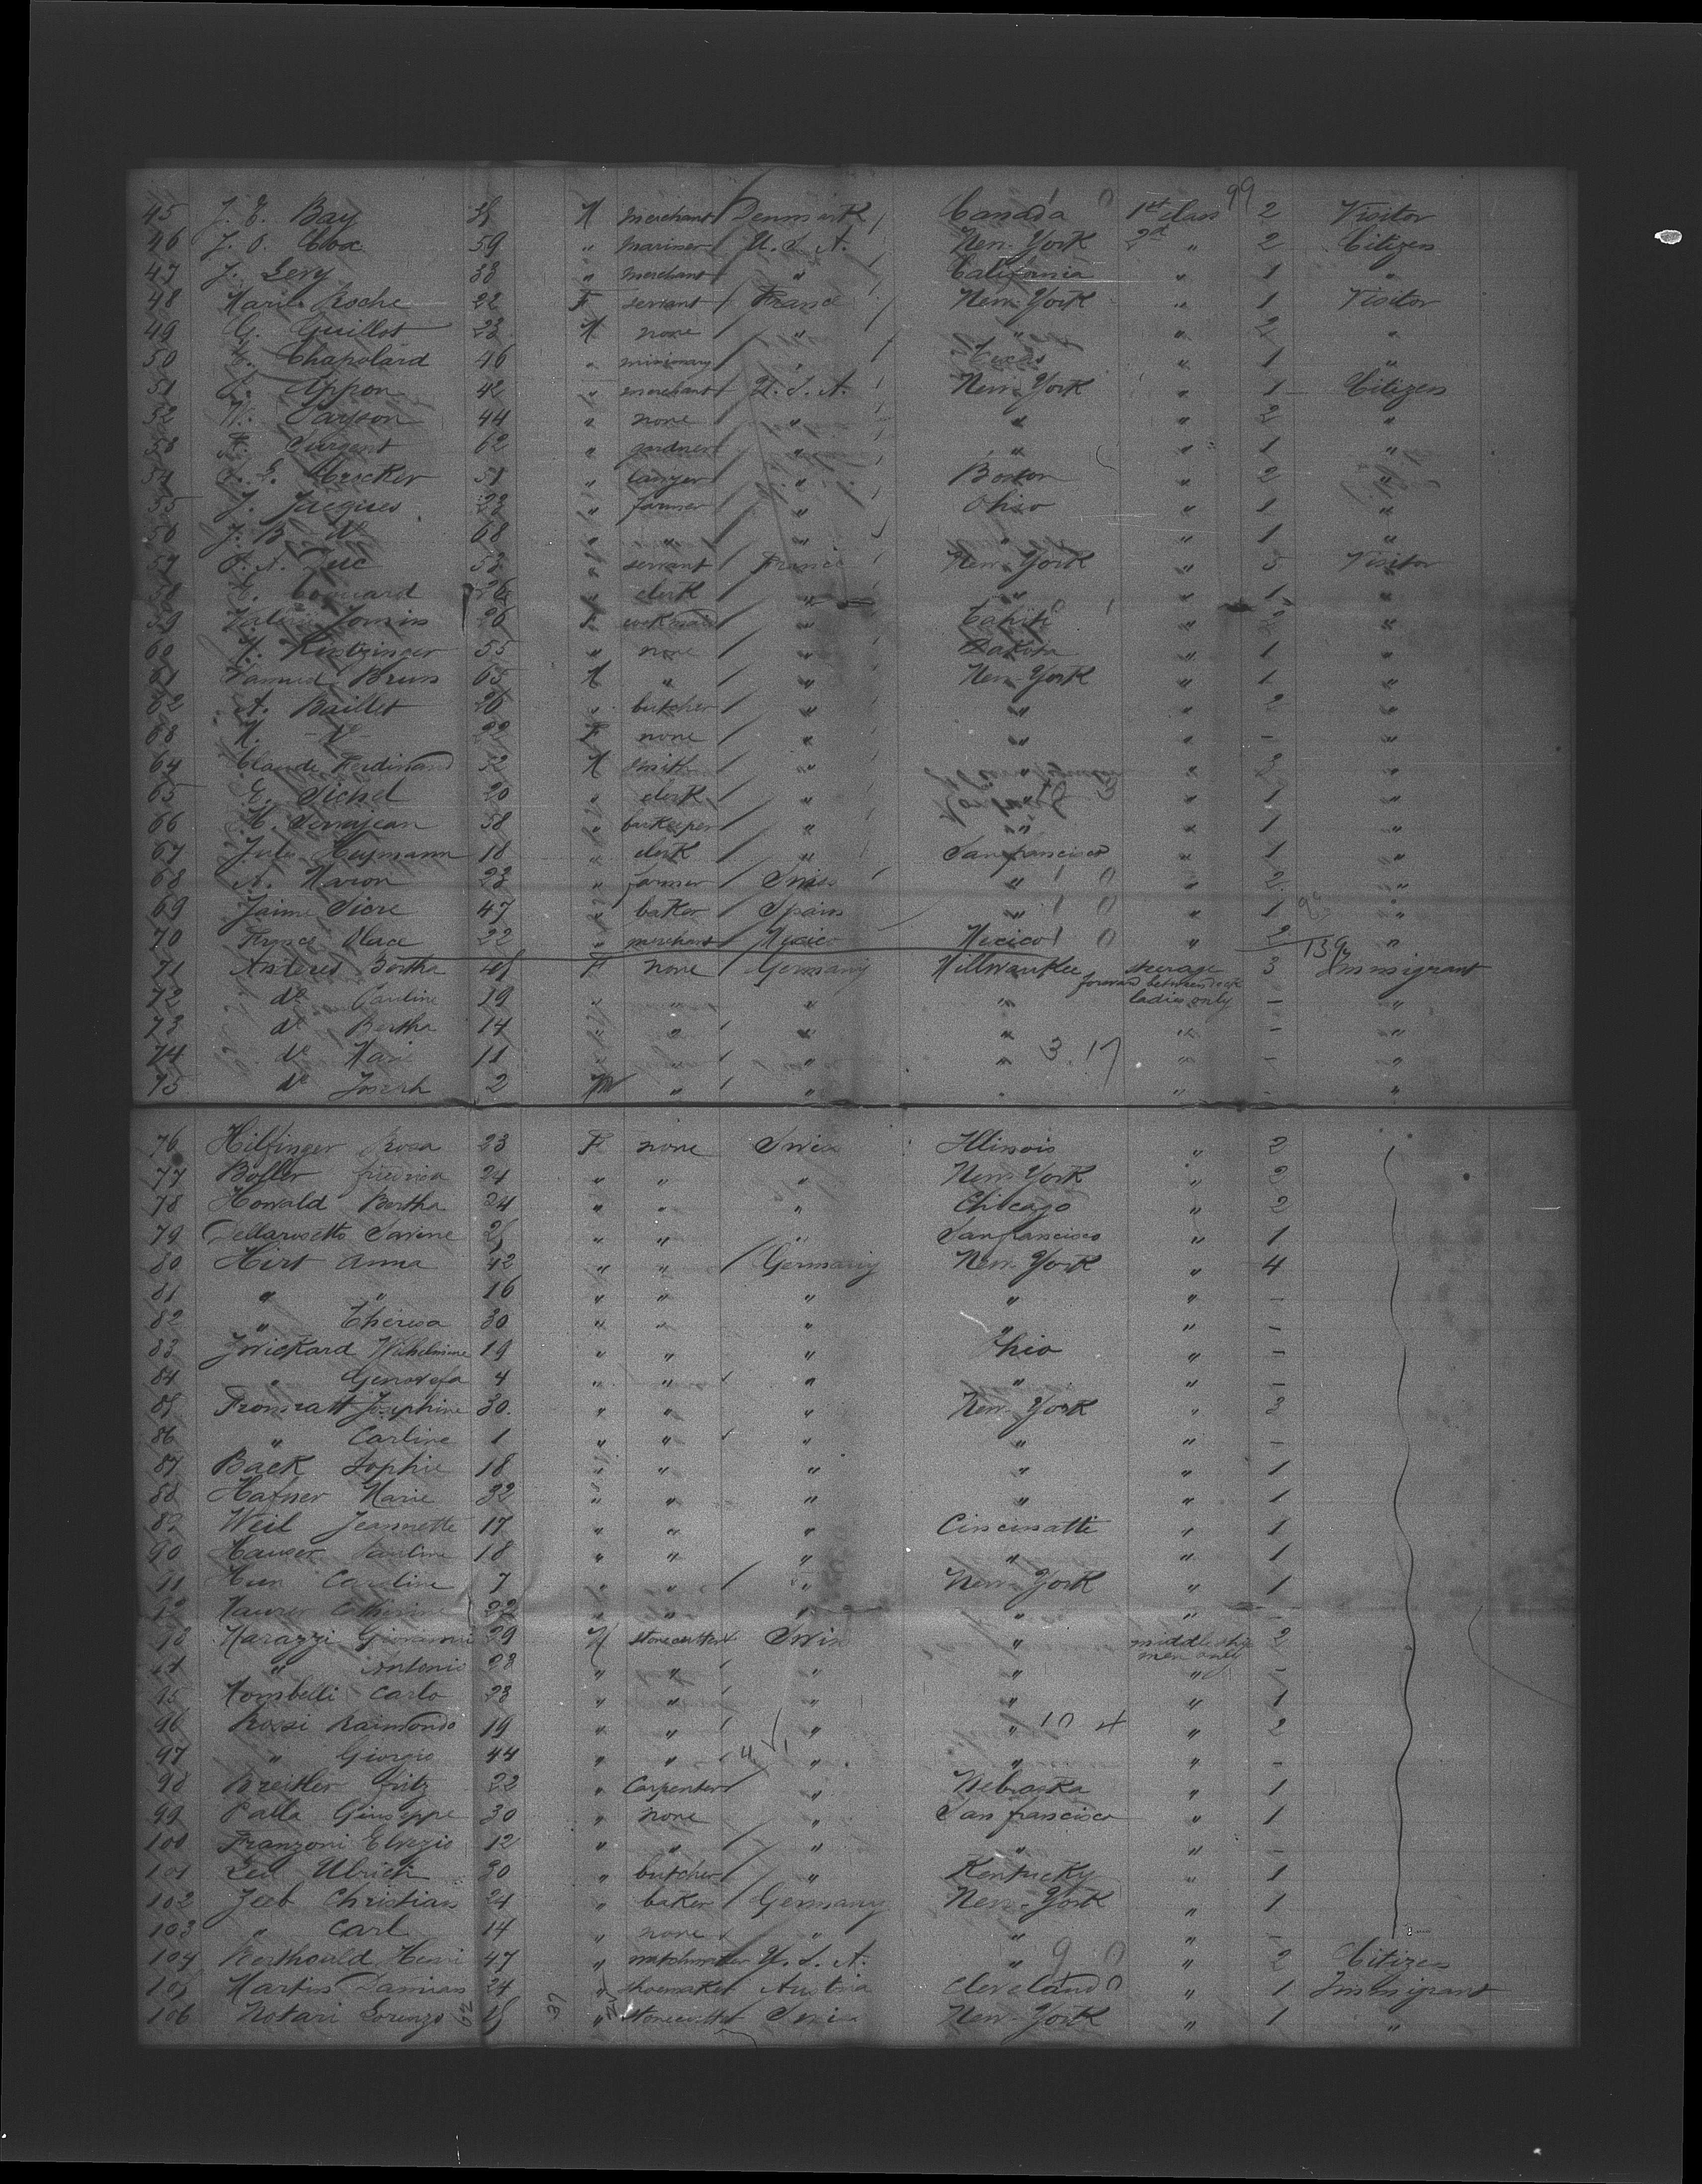 99
45 J. E. Bay 35 M merchant Denmark Canada 1st class 2 Visitor
46 J. O. Cox 59 " mariner U. S. A. New-York 2d " 2 Citizen
47 J. Levy 33 " merchant " California " 1 "
48 Marie Roche 22 F servant France New-York " 1 Visitor
49 G. Guillot 23 M none " " " 2 "
50 E. Chapolard 46 " missionary " Texas " 1 "
51 Appon 42 " merchant U. S. A. New-York " 1 Citizen
52 44 " none " " " 2 "
53 F. Surgent 62 " gardner " " " 1 "
54 Crocker 51 " lawyer " Boston " 2 "
55 J. Jacques 23 " farmer " Ohio " 1 "
56 J. B. do 68 " " " " " 1 "
57 Luc 52 " servant France New-York " 3 Visitor
58 26 " clerk " " " 1 "
59 Valerie 26 F cookmaid " Tahiti " 2 "
60 Kintzinger 55 " none " Dakota " 1 "
61 Bruns 65 M " " New-York " 1 "
62 A. Baillet 26 " butcher " " " 2 "
63 M. do 22 F none " " " - "
64 Claude Ferdinand 32 M smith " " 2 "
65 E. Sichel 20 " clerk " " 1 "
66 H. 58 " barkeeper " " " 1 "
67 Jules Heymann 18 " clerk " Sanfrancisco " 1 "
68 A. Maron 23 " farmer Swiss " " 2 "
69 Jaime Sicre 47 " baker Spain " " 1 "
70 22 " merchant Mexico Mexico " 2 "
139
71 Anderes Bertha 45 F none Germany Millwaukee steerage 3 Immigrant
forward between deck
72 do Pauline 19 " " " " ladies only - "
73 do Bertha 14 " " " " " - "
74 do Marie 11 " " " " 3.17 " - "
75 do Joseph 2 M " " " " - "
76 Hilfinger Rosa 23 F none Swiss Illinois " 2
77 Boller 24 " " " New-York " 2
78 Howald Bertha 24 " " " Chicago " 2
79 Dellarosetto Savine 25 " " " Sanfrancisco " 1
80 Hirt Anna 42 " " Germany New-York " 4
81 " " 16 " " " " " -
82 " Theresa 30 " " " " " -
83 Zwickard Wilhelmine 19 " " " Ohio " -
84 " Genovefa 4 " " " " " -
85 Josephine 30 " " " New-York " 3
86 " Carline 1 " " " " " -
87 Back Sophie 18 " " " " " 1
88 Hafner Marie 32 " " " " " 1
89 Weil Jeannette 17 " " " Cincinatti " 1
90 Hauser Pauline 18 " " " " " 1
91 Caroline 7 " " " New-York " 1
92 Maurer Catherine 22 " " " " " -
93 Marazzi Giovanni 29 M stonecutter Swiss " middle ship 2
men only
94 " Antonio 28 " " " " " -
95 Tombelli Carlo 23 " " " " " 1
96 Rossi Raimondo 19 " " " " 10 4 " 2
97 " Giorgio 44 " " " " " -
98 Breitler Fritz 22 " Carpenter " Nebraska " 1
99 Palla Giuseppe 30 " none " San francisco " 1
100 Franzoni Elvezio 12 " " " " " -
101 Ulrich 30 " butcher " Kentucky " 1
102 Zeeb Christian 24 " baker Germany New-York " 1
103 " Carl 14 " none " " " -
104 Berthould Henri 47 " U. S. A. " 9 0 " 2 Citizen
105 Martin Damian 24 " shoemaker Austria Cleveland " 1 Immigrant
106 Notari Lorenzo 18 " stonecutter Swiss New-York " 1 "